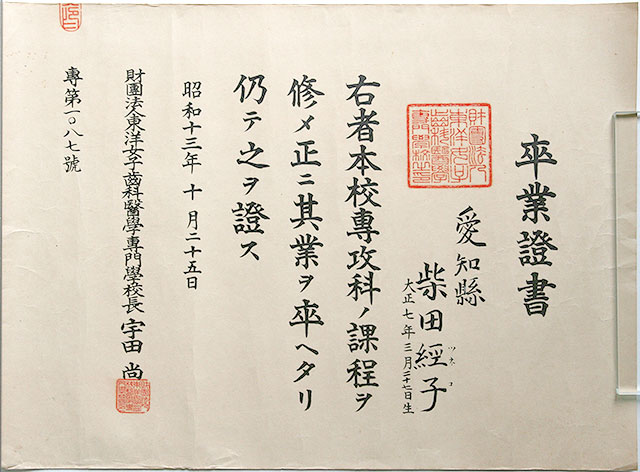 卒業證書
愛知縣
柴田經子
ツネコ
大正七年三月二十七日生
右者本校專攻科ノ課程ヲ
修メ正ニ其業ヲ卒ヘタリ
仍テ之ヲ證ス
昭和十三年十月二十五日
財團法人東洋女子齒科醫學專門學校長 宇田 尚
專第一〇八七號